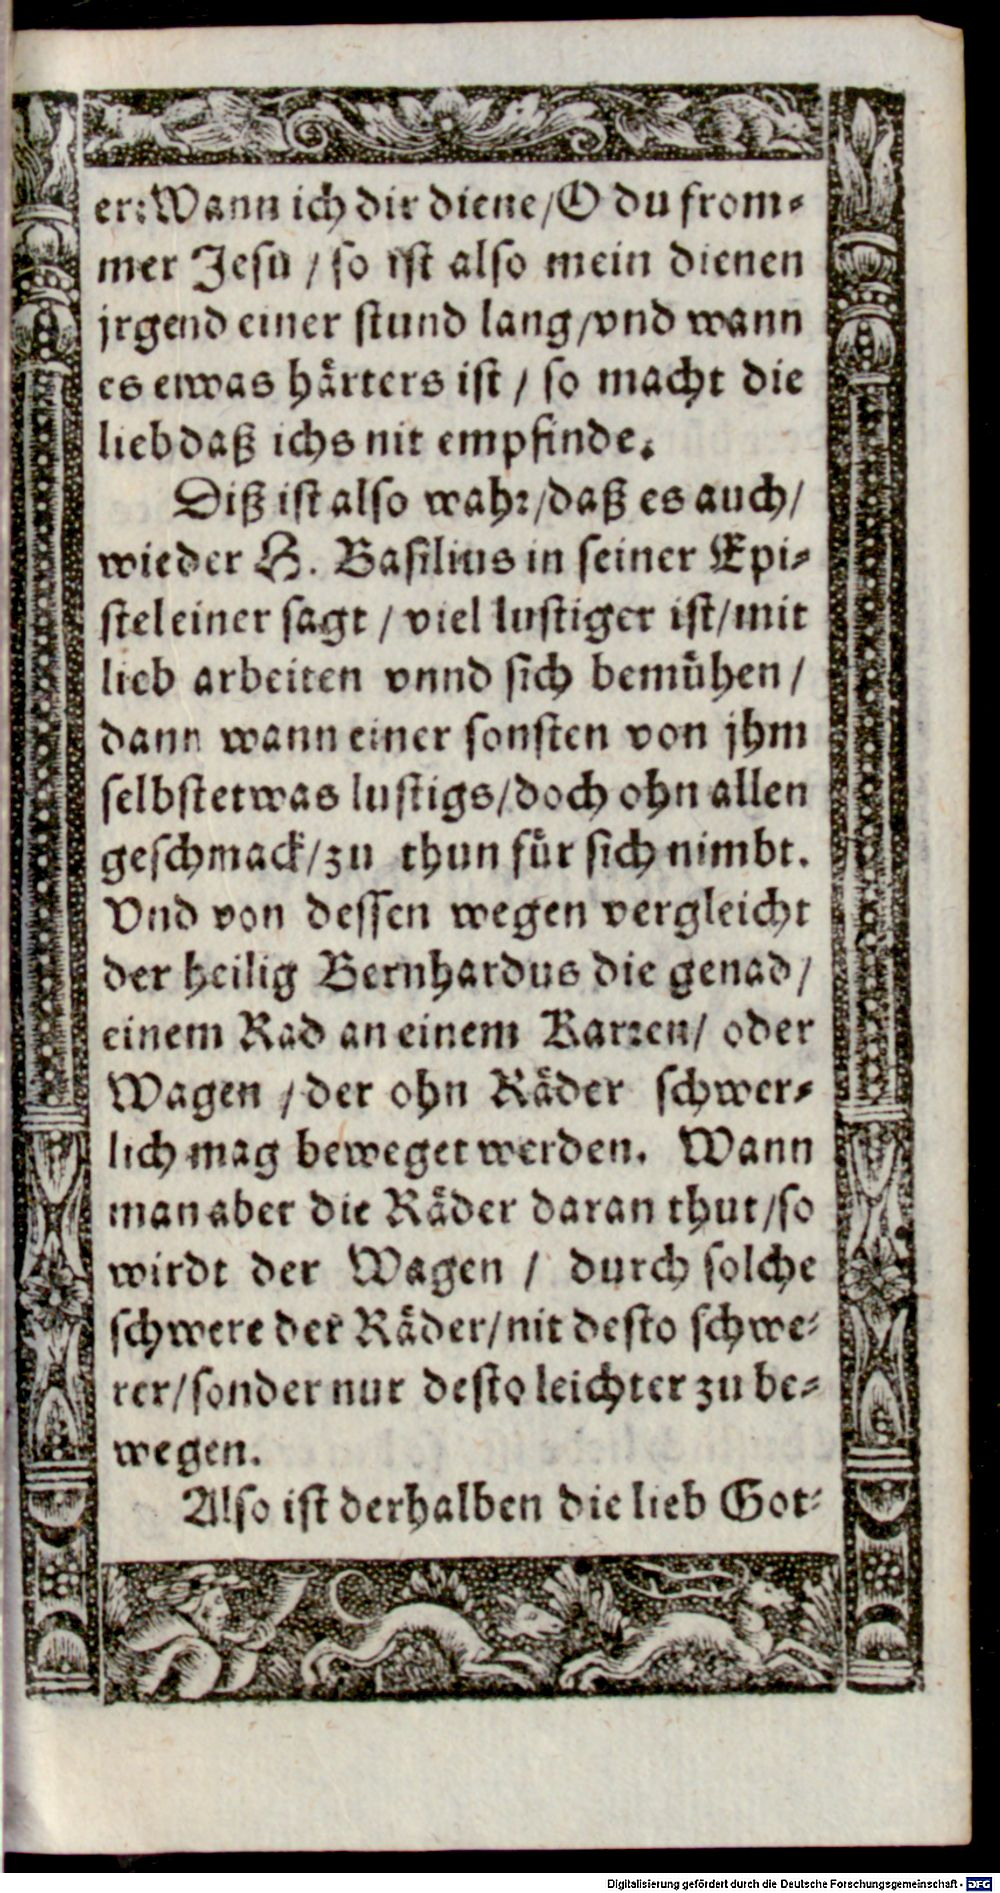 er: Wann ich dir diene / O du from⸗
mer Jesu / so ist also mein dienen
jrgend einer stund lang / vnd wann
es etwas haͤrters ist / so macht die
lieb daß ichs nit empfinde.
Diß ist also wahr / daß es auch /
wie der H. Basilius in seiner Epi⸗
stel einer sagt / viel lustiger ist / mit
lieb arbeiten vnnd sich bemuͤhen /
dann wann einer sonsten von jhm
selbst etwas lustigs / doch ohn allen
geschmack / zu thun fuͤr sich nimbt.
Vnd von dessen wegen vergleicht
der heilig Bernhardus die genad /
einem Rad an einem Karren / oder
Wagen / der ohn Raͤder schwer⸗
lich mag beweget werden. Wann
man aber die Raͤder daran thut / so
wirdt der Wagen / durch solche
schwere der Raͤder / nit desto schwe⸗
rer / sonder nur desto leichter zu be⸗
wegen.
Also ist derhalben die lieb Got⸗
Digitalisierung gefördert durch die Deutsche Forschungsgemeinschaft - DFG